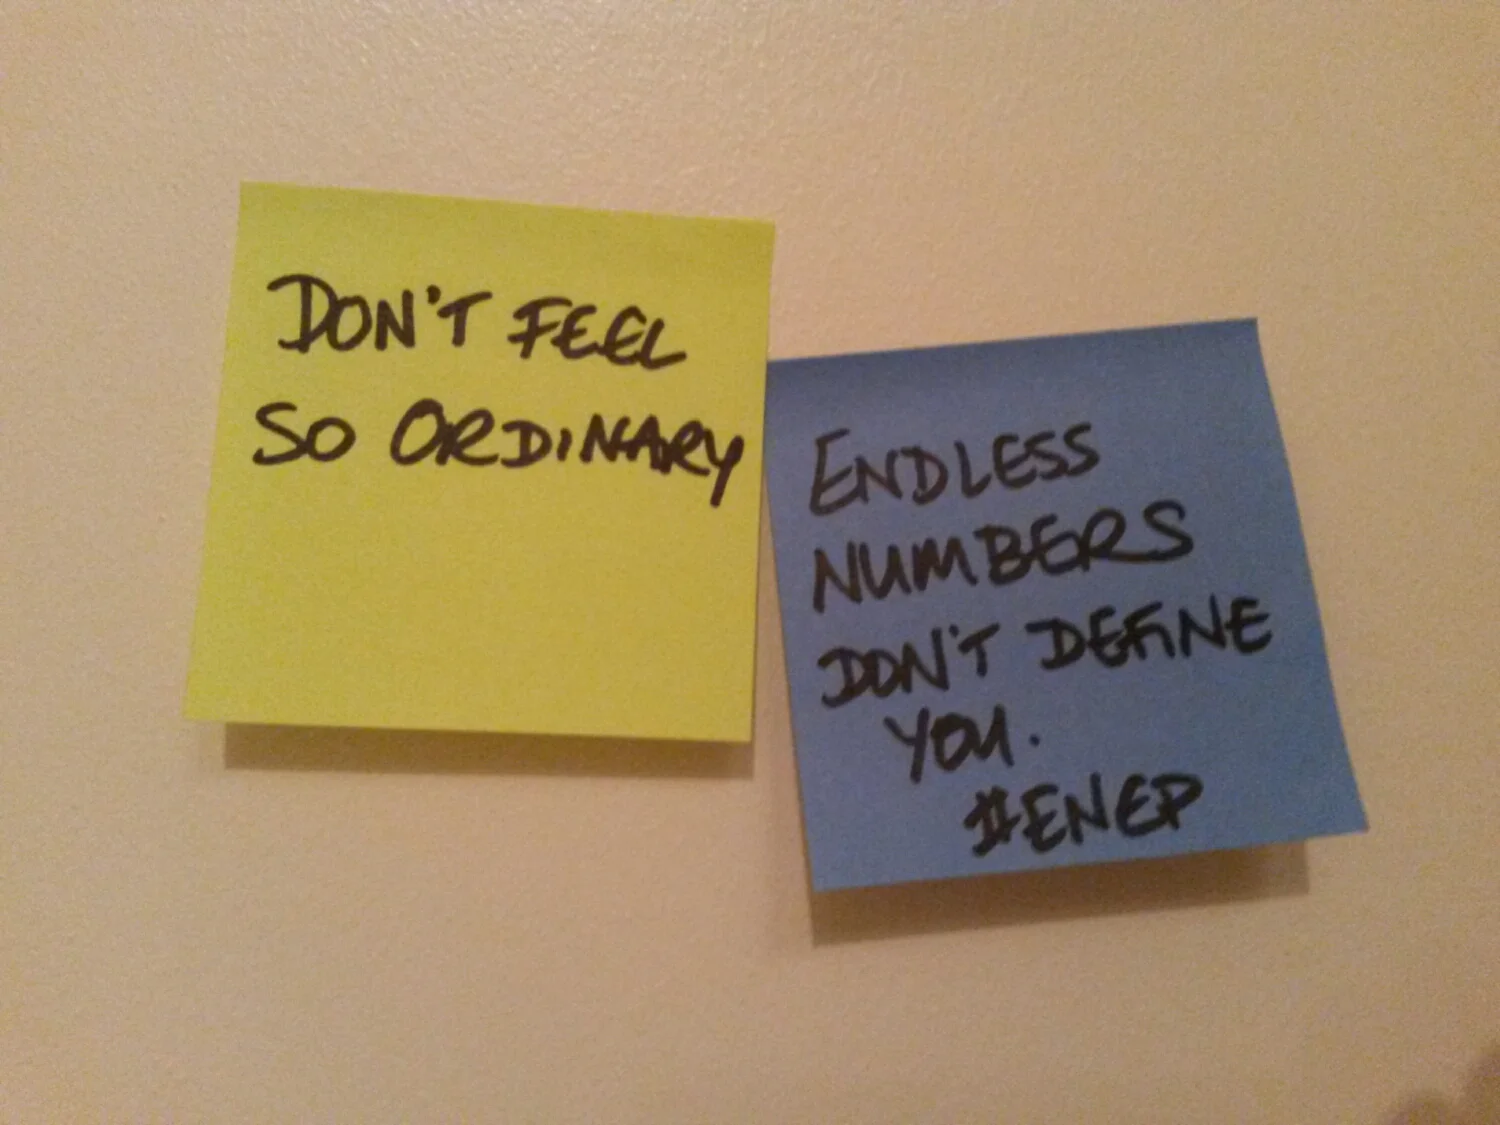 DON'T FEEL
SO ORDINARY
ENDLESS
NUMBERS
DON'T DEFINE
YOU.
#ENEP